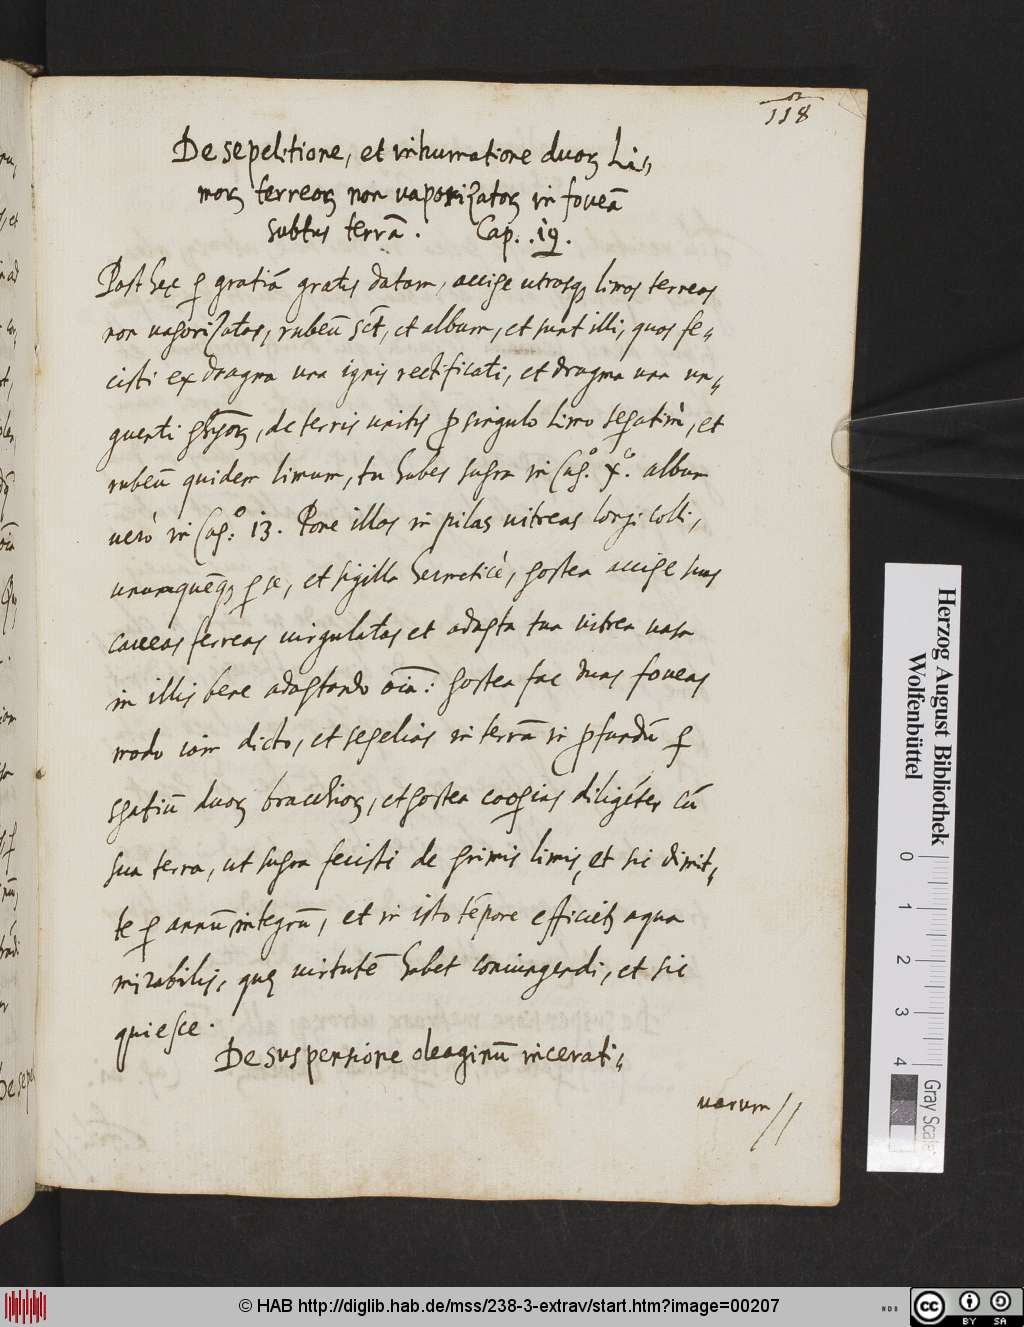 118
De sepelitione, et inhumatione duoꝝ Li„
moꝝ terreoꝝ non vaporizatoꝝ in foveā
subtus terrā. Cap. .19.
Post hęc ꝑ gratiā gratis datam, accipe utrosq; limos terreos
non vaporizatos, rubeū sct, et album, et sunt illi, quos fe„
cisti ex dragma una ignis rectificati, et dragma una un„
guenti , de terris unitis ꝓ singulo limo sepatim, et
rubeū quidem limum, tu habes supra in Capº. Xº. album
verò in Capº: 13. Pone illos in pilas vitreas longi colli,
unumquēq; ꝑ se, et sigilla hermeticè, postea accipe suas
caveas ferreas virgulatas et adapta tua vitrea vasa
in illis bene adaptando oīa: postea fac duas foveas
modo iam dicto, et sepelias in terrā in ꝓfundū ꝑ
spatiū duoꝝ brachioꝝ, et postea cooꝑias diligēter cū
sua terra, ut supra fecisti de primis limis, et sic dimit„
te ꝑ annū integrū, et in isto tēpore efficiet aqua
mirabilis, quę virtutē habet coniungendi, et sic
quiesce.
De suspensione oleaginū incerati„
varum //
Herzog August Bibliothek
Wolfenbüttel
0 1 2 3 4
Gray Scale
© HAB http://diglib.hab.de/mss/238-3-extrav/start.htm?image=00207
cc BY SA